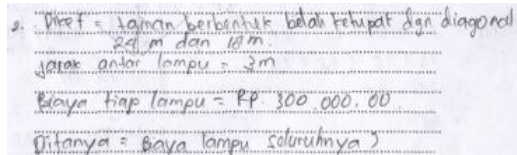 2. Diket = taman berbentuk belah ketupat dgn diagonal
24 m dan 18 m.
jarak antar lampu = 3m
Biaya tiap lampu = Rp. 300.000.00
Ditanya = Biaya lampu seluruhnya ?